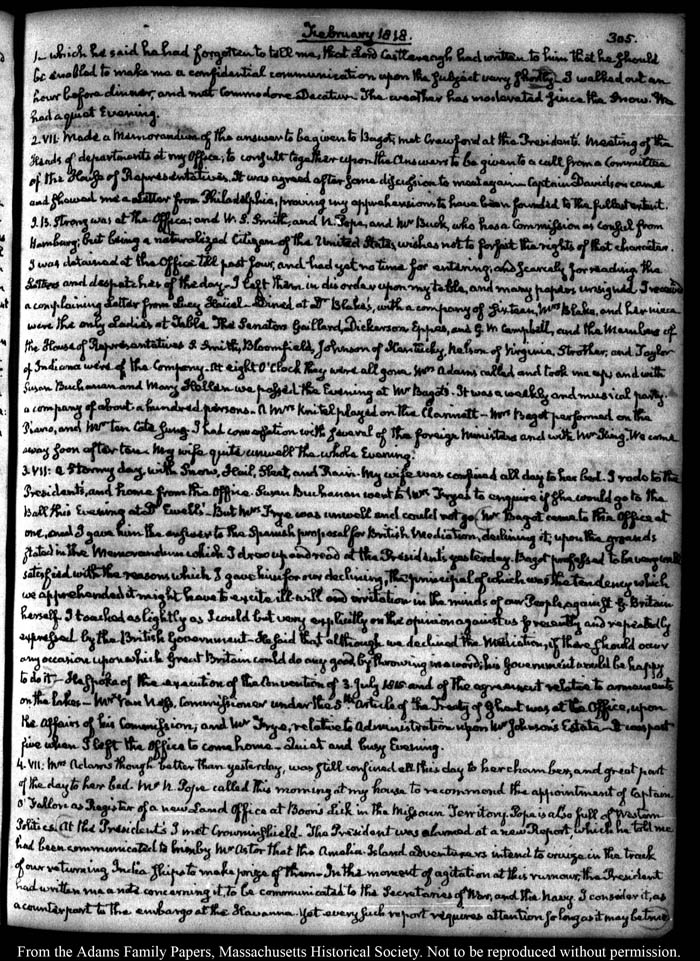 February 1818. 305.
1. which he said he had forgotten to tell me, that Lord Castlereagh had written to him that he should
be enabled to make me a confidential communication upon the subject very shortly. I walked out an
hour before dinner, and met Commodore Decatur. The weather has moderated since the snow. We
had a quiet Evening.
2. VII. Made a Memorandum of the answer to be given to Bagot; met Crawford at the President's. Meeting of the
Heads of departments at my Office; to consult together upon the Answers to be given to a call from a Committee
of the House of Representatives. It was agreed after some discussion to meet again. Captain Davidson came
and showed me a Letter from Philadelphia, proving my apprehensions to have been founded to the fullest extent.
J. B. Strong was at the Office; and W. S. Smith, and N. Pope, and Mr Buck, who has a Commission as Consul from
Hamburg; but being a naturalized Citizen of the United States, wishes not to forfeit the rights of that character.
I was detained at the Office till past four, and had yet no time for entering, and scarcely for reading the
Letters and despatches of the day. I left them in disorder upon my table, and many papers unsigned. I received
a complaining Letter from Lucy Dined at Dr Blake's, with a company of Sixteen, Mrs Blake, and her niece
were the only Ladies at Table. The Senators Gaillard, Dickerson, Eppes, and G. W. Campbell, and the Members of
the House of Representatives S. Smith, Bloomfield, Johnson of Kentucky, Nelson of Virginia, Strother, and Taylor
of Indiana were of the Company. At eight O'Clock they were all gone. Mrs Adams called and took me up and with
Susan Buchanan and Mary Hellen we passed the Evening at Mr Bagot's. It was a weekly and musical party.
a company of about a hundred persons. A Mrs Knitel played on the Clarinett — Mrs Bagot performed on the
Piano, and Mr Ten Cate sung. I had conversation with several of the foreign Ministers and with Mr King. We came
away soon after ten. My wife quite unwell the whole Evening.
3. VII: A Stormy day, with Snow, Hail, Sleet, and Rain. My wife was confined all day to her bed. I rode to the
President's, and home from the Office. Susan Buchanan went to Mrs Frye's to enquire if she would go to the
Ball this Evening at Dr Ewell's. But Mrs Frye was unwell and could not go. Mr Bagot came to the Office at
one, and I gave him the answer to the Spanish proposal for British Mediation, declining it; upon the grounds
stated in the Memorandum which I drew up and read at the President's yesterday. Bagot professed to be very well
satisfied with the reasons which I gave him for our declining, the principal of which was the tendency which
we apprehended it might have to excite ill-will and irritation in the minds of our People against Gt Britain
herself. I touched as lightly as I could but very explicitly on the opinion against us so recently and repeatedly
expressed by the British Government. He said that although we declined the Mediation, if there should occur
any occasion upon which Great Britain could do any good by throwing in a word, his Government would be happy
to do it. — He spoke of the execution of the Convention of 3. July 1815 and of the agreement relative to armaments
on the Lakes. — Mr Van Ness, Commissioner under the 5th Article of the Treaty of Ghent was at the Office, upon
the affairs of his Commission; and Mr Frye, relative to Administration upon Mr Johnson's Estate. — It was past
five when I left the Office to come home. — Quiet and busy Evening.
4. VII: Mrs Adams though better than yesterday, was still confined all this day to her chamber, and great part
of the day to her bed. Mr N. Pope called this morning at my house to recommend the appointment of Captain
O'Fallon as Register of a new Land Office at Boon's Lick in the Missouri Territory. Pope is also full of Western
Politics. At the President's I met Crowninshield. The President was alarmed at a new Report, which he told me
had been communicated to him by Mr Astor that the Amelia Island adventurers intend to cruize in the track
of our returning India Ships to make prize of them. — In the moment of agitation at this rumour, the President
had written me a note concerning it, to be communicated to the Secretaries of War, and the Navy. I consider it, as
a counterpart to the embargo at the Havanna. Yet every such report requires attention so long as it may be true
From the Adams Family Papers, Massachusetts Historical Society. Not to be reproduced without permission.